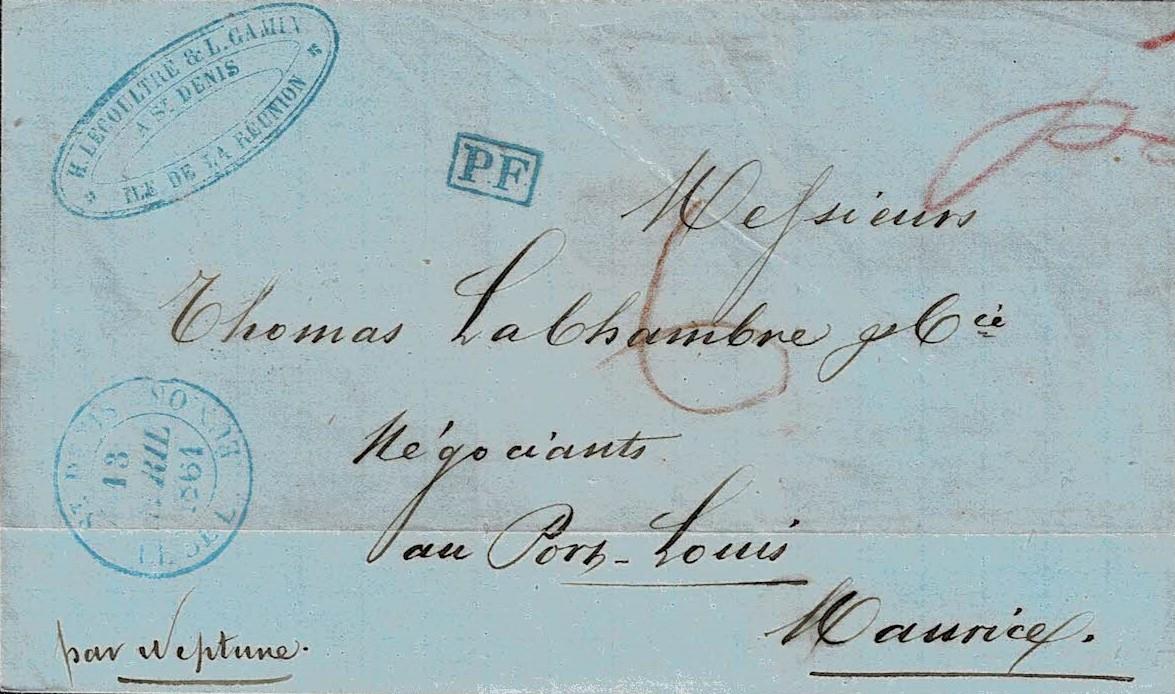 H. LECOULTRE & L. GAMIN
A ST. DENIS
ILE DE LA RÉUNION
PF
Messieurs
6
Thomas LaChambre & Cie
ST. DENIS
13
AVRIL
1861
Négociants
au Port-Louis
Maurice.
par Neptune.